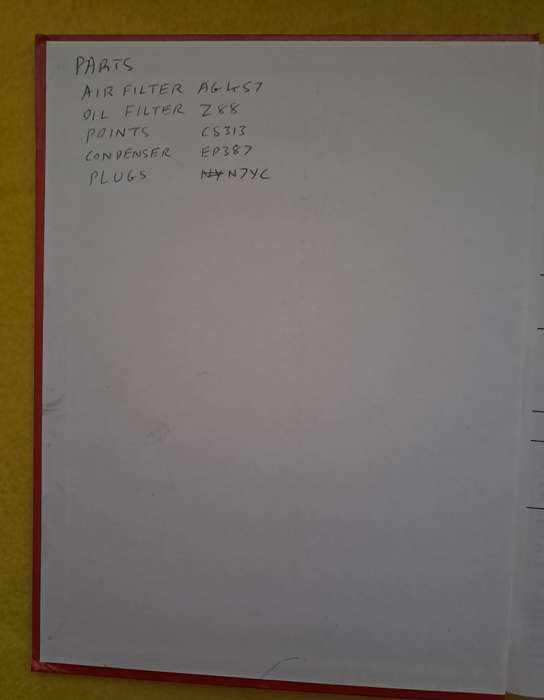 PARTS
AIR FILTER AG457
OIL FILTER Z88
POINTS CS313
CONDENSER EP387
PLUGS N7YC